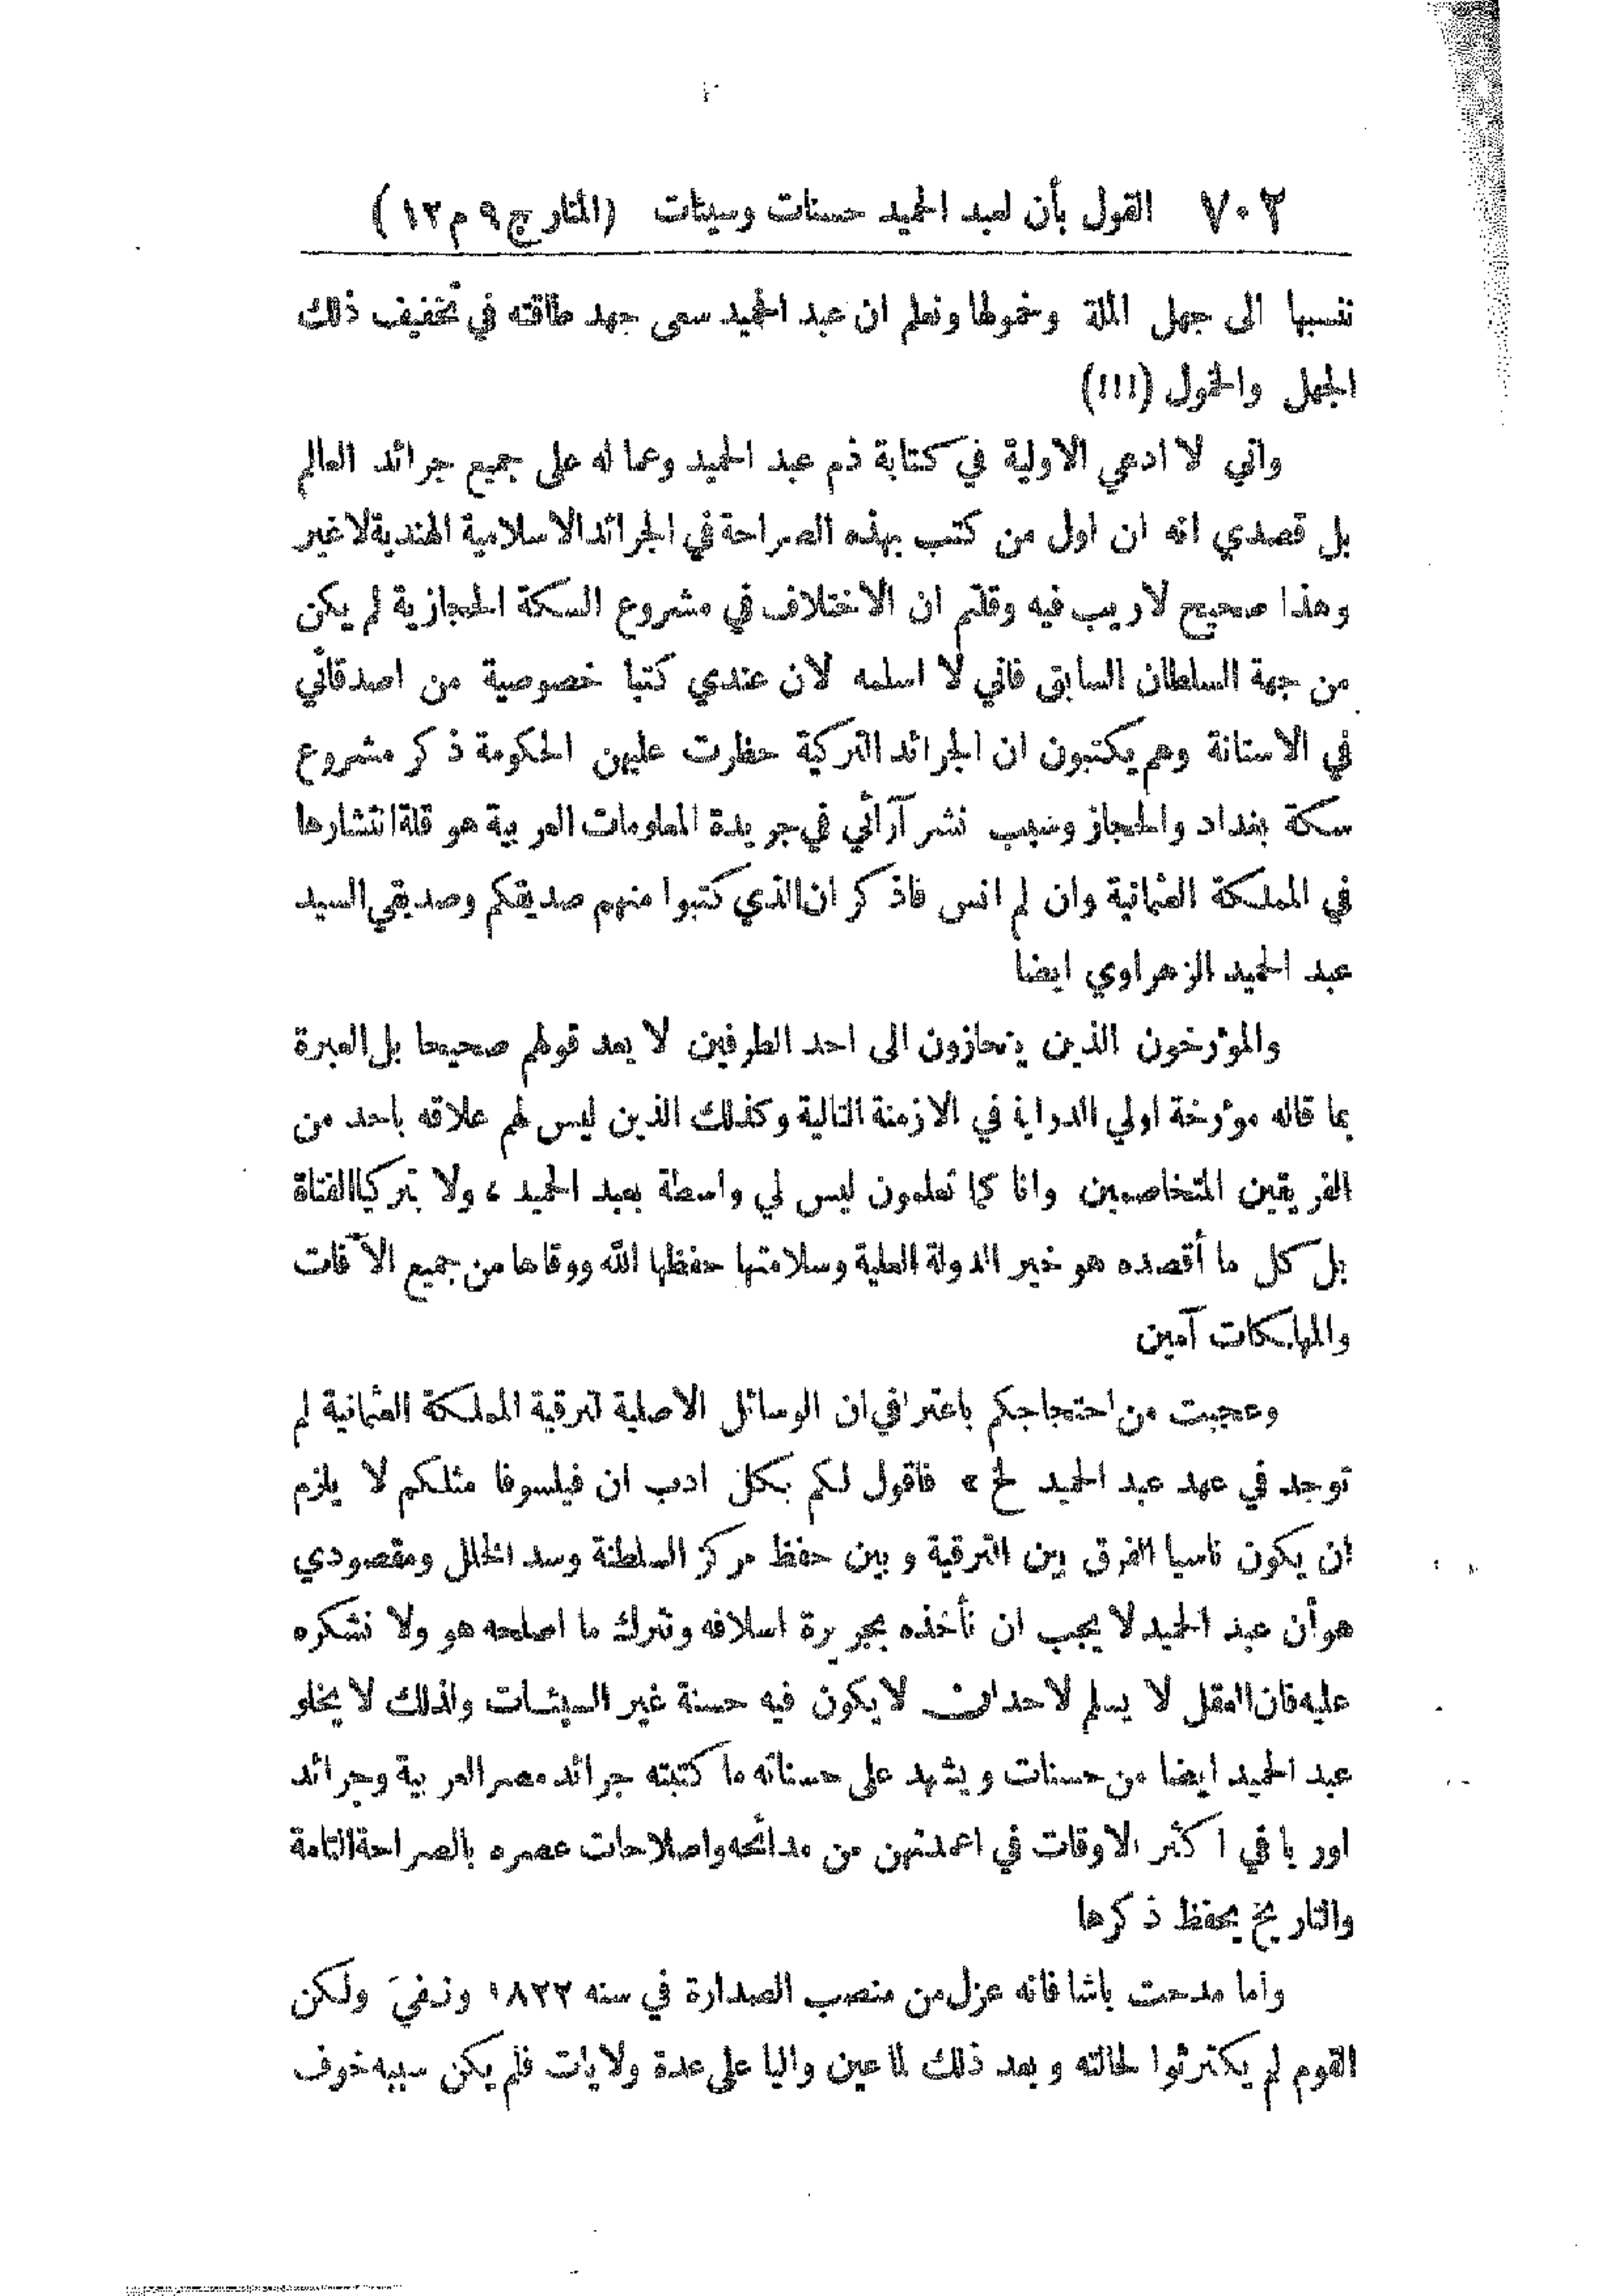 ٧٠٢ القول بأن لعبد الحميد حسنات وسيئات (المنار ج ٩ م ١٢)
ننسبها الى جهل الملة وخمولها ونعلم ان عبد الحميد سعى جهد طاقته في تخفيف ذلك
الجهل والخمول (!!!)
واني لا ادعي الاولية في كتابة ذم عبد الحميد وعماله على جميع جرائد العالم
بل قصدي انه ان اول من كتب بهذه الصراحة في الجرائد الاسلامية الهندية لا غير
وهذا صحيح لا ريب فيه وقلتم ان الاختلاف في مشروع السكة الحجازية لم يكن
من جهة السلطان السابق فاني لا اسلمه لان عندي كتبا خصوصية من اصدقائي
في الاستانة وهم يكتبون ان الجرائد التركية حظرت عليهن الحكومة ذكر مشروع
سكة بغداد والحجاز وسبب نشر آرائي في جريدة المعلومات العربية هو قلة انتشارها
في المملكة العثمانية وان لم انس فاذكر ان الذي كتبوا منهم صديقكم وصديقي السيد
عبد الحميد الزهراوي ايضا
والمؤرخون الذين ينحازون الى احد الطرفين لا يعد قولهم صحيحا بل العبرة
بما قاله مؤرخة اولي الدراية في الازمنة التالية وكذلك الذين ليس لهم علاقه باحد من
الفريقين المتخاصمين وانا كما تعلمون ليس لي واسطة بعبد الحميد ، ولا بتركيا الفتاة
بل كل ما أقصده هو خير الدولة العلية وسلامتها حفظها الله ووقاها من جميع الآفات
والمهلكات آمين
وعجبت من احتجاجكم باعترافي ان الوسائل الاصلية لترقية المملكة العثمانية لم
توجد في عهد عبد الحميد لخ » فاقول لكم بكل ادب ان فيلسوفا مثلكم لا يلزم
ان يكون ناسيا الفرق بين الترقية وبين حفظ مركز السلطنة وسد الخلل ومقصودي
هو أن عبد الحميد لا يجب ان نأخذه بجريرة اسلافه ونترك ما اصلحه هو ولا نشكره
عليه فان العقل لا يسلم لاحد ان لا يكون فيه حسنة غير السيئات ولذلك لا يخلو
عبد الحميد ايضا من حسنات ويشهد على حسناته ما كتبته جرائد مصر العربية وجرائد
اوربا في اكثر الاوقات في اعمدتهن من مدائحه واصلاحات عصره بالصراحة التامة
والتاريخ يحفظ ذكرها
واما مدحت باشا فانه عزل من منصب الصدارة في سنه ١٨٢٢ ونفيَ ولكن
القوم لم يكترثوا لحالته وبعد ذلك لما عين واليا على عدة ولايات فلم يكن سببه خوف